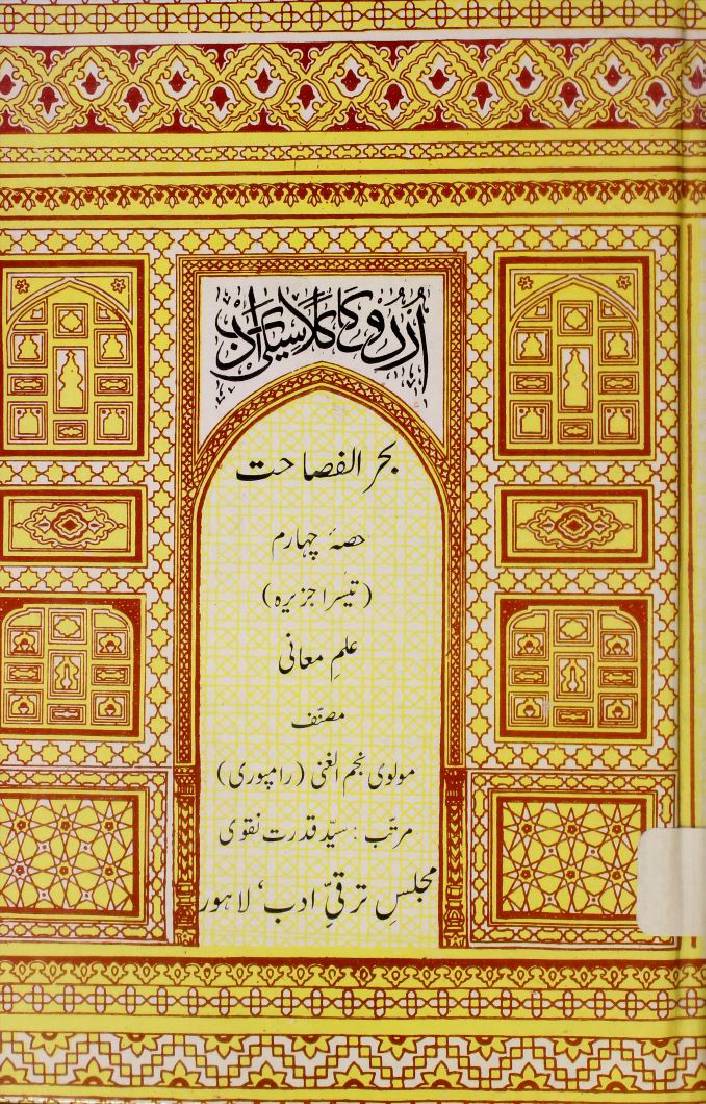 اُردو کا کلاسیکی ادب
بحر الفصاحت
حصۂ چہارم
(تیسرا جزیرہ)
علمِ معانی
مصنّف
مولوی نجم الغنی (رامپوری)
مرتّب : سیّد قدرت نقوی
مجلسِ ترقیِّ ادب، لاہور